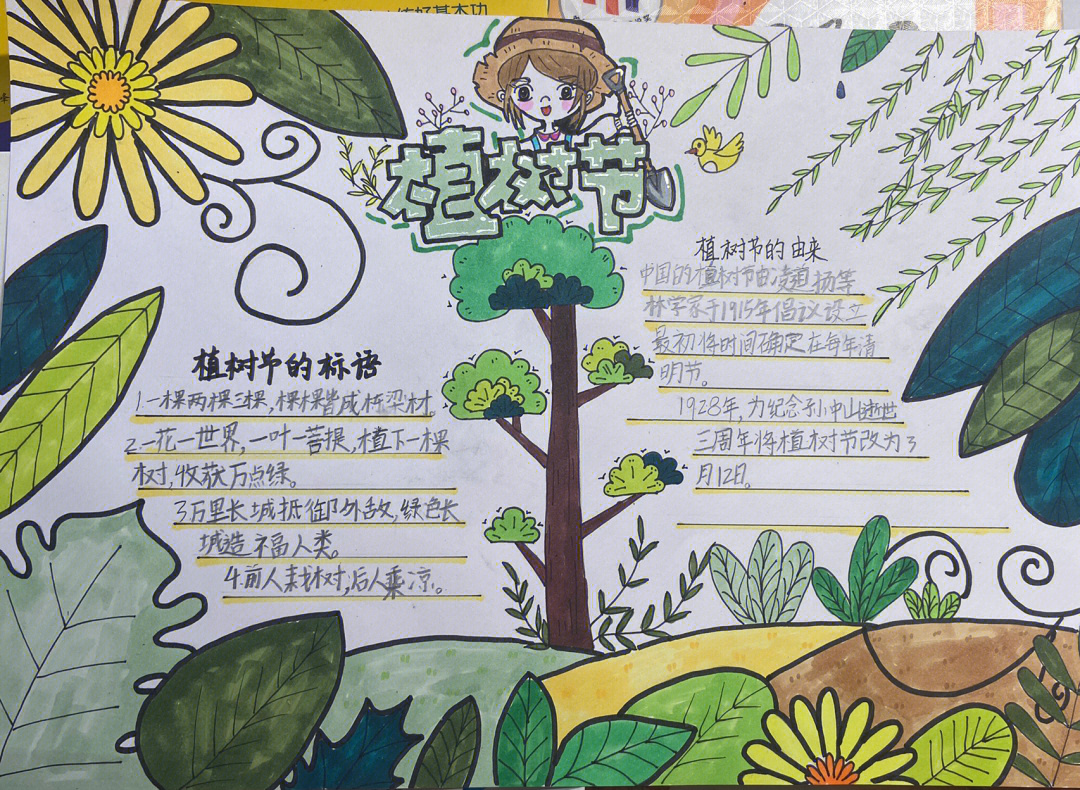 练好基本功
植树节
植树节的标语
1.一棵两棵三棵,棵棵皆成栋梁材。
2.一花一世界,一叶一菩提,植下一棵
树,收获万点绿。
3万里长城抵御外敌,绿色长
城造福人类。
4.前人栽树,后人乘凉。
植树节的由来
中国的植树节由凌道扬等
林学家于1915年倡议设立
最初将时间确定在每年清
明节。
1928年,为纪念孙中山逝世
三周年将植树节改为3
月12日。